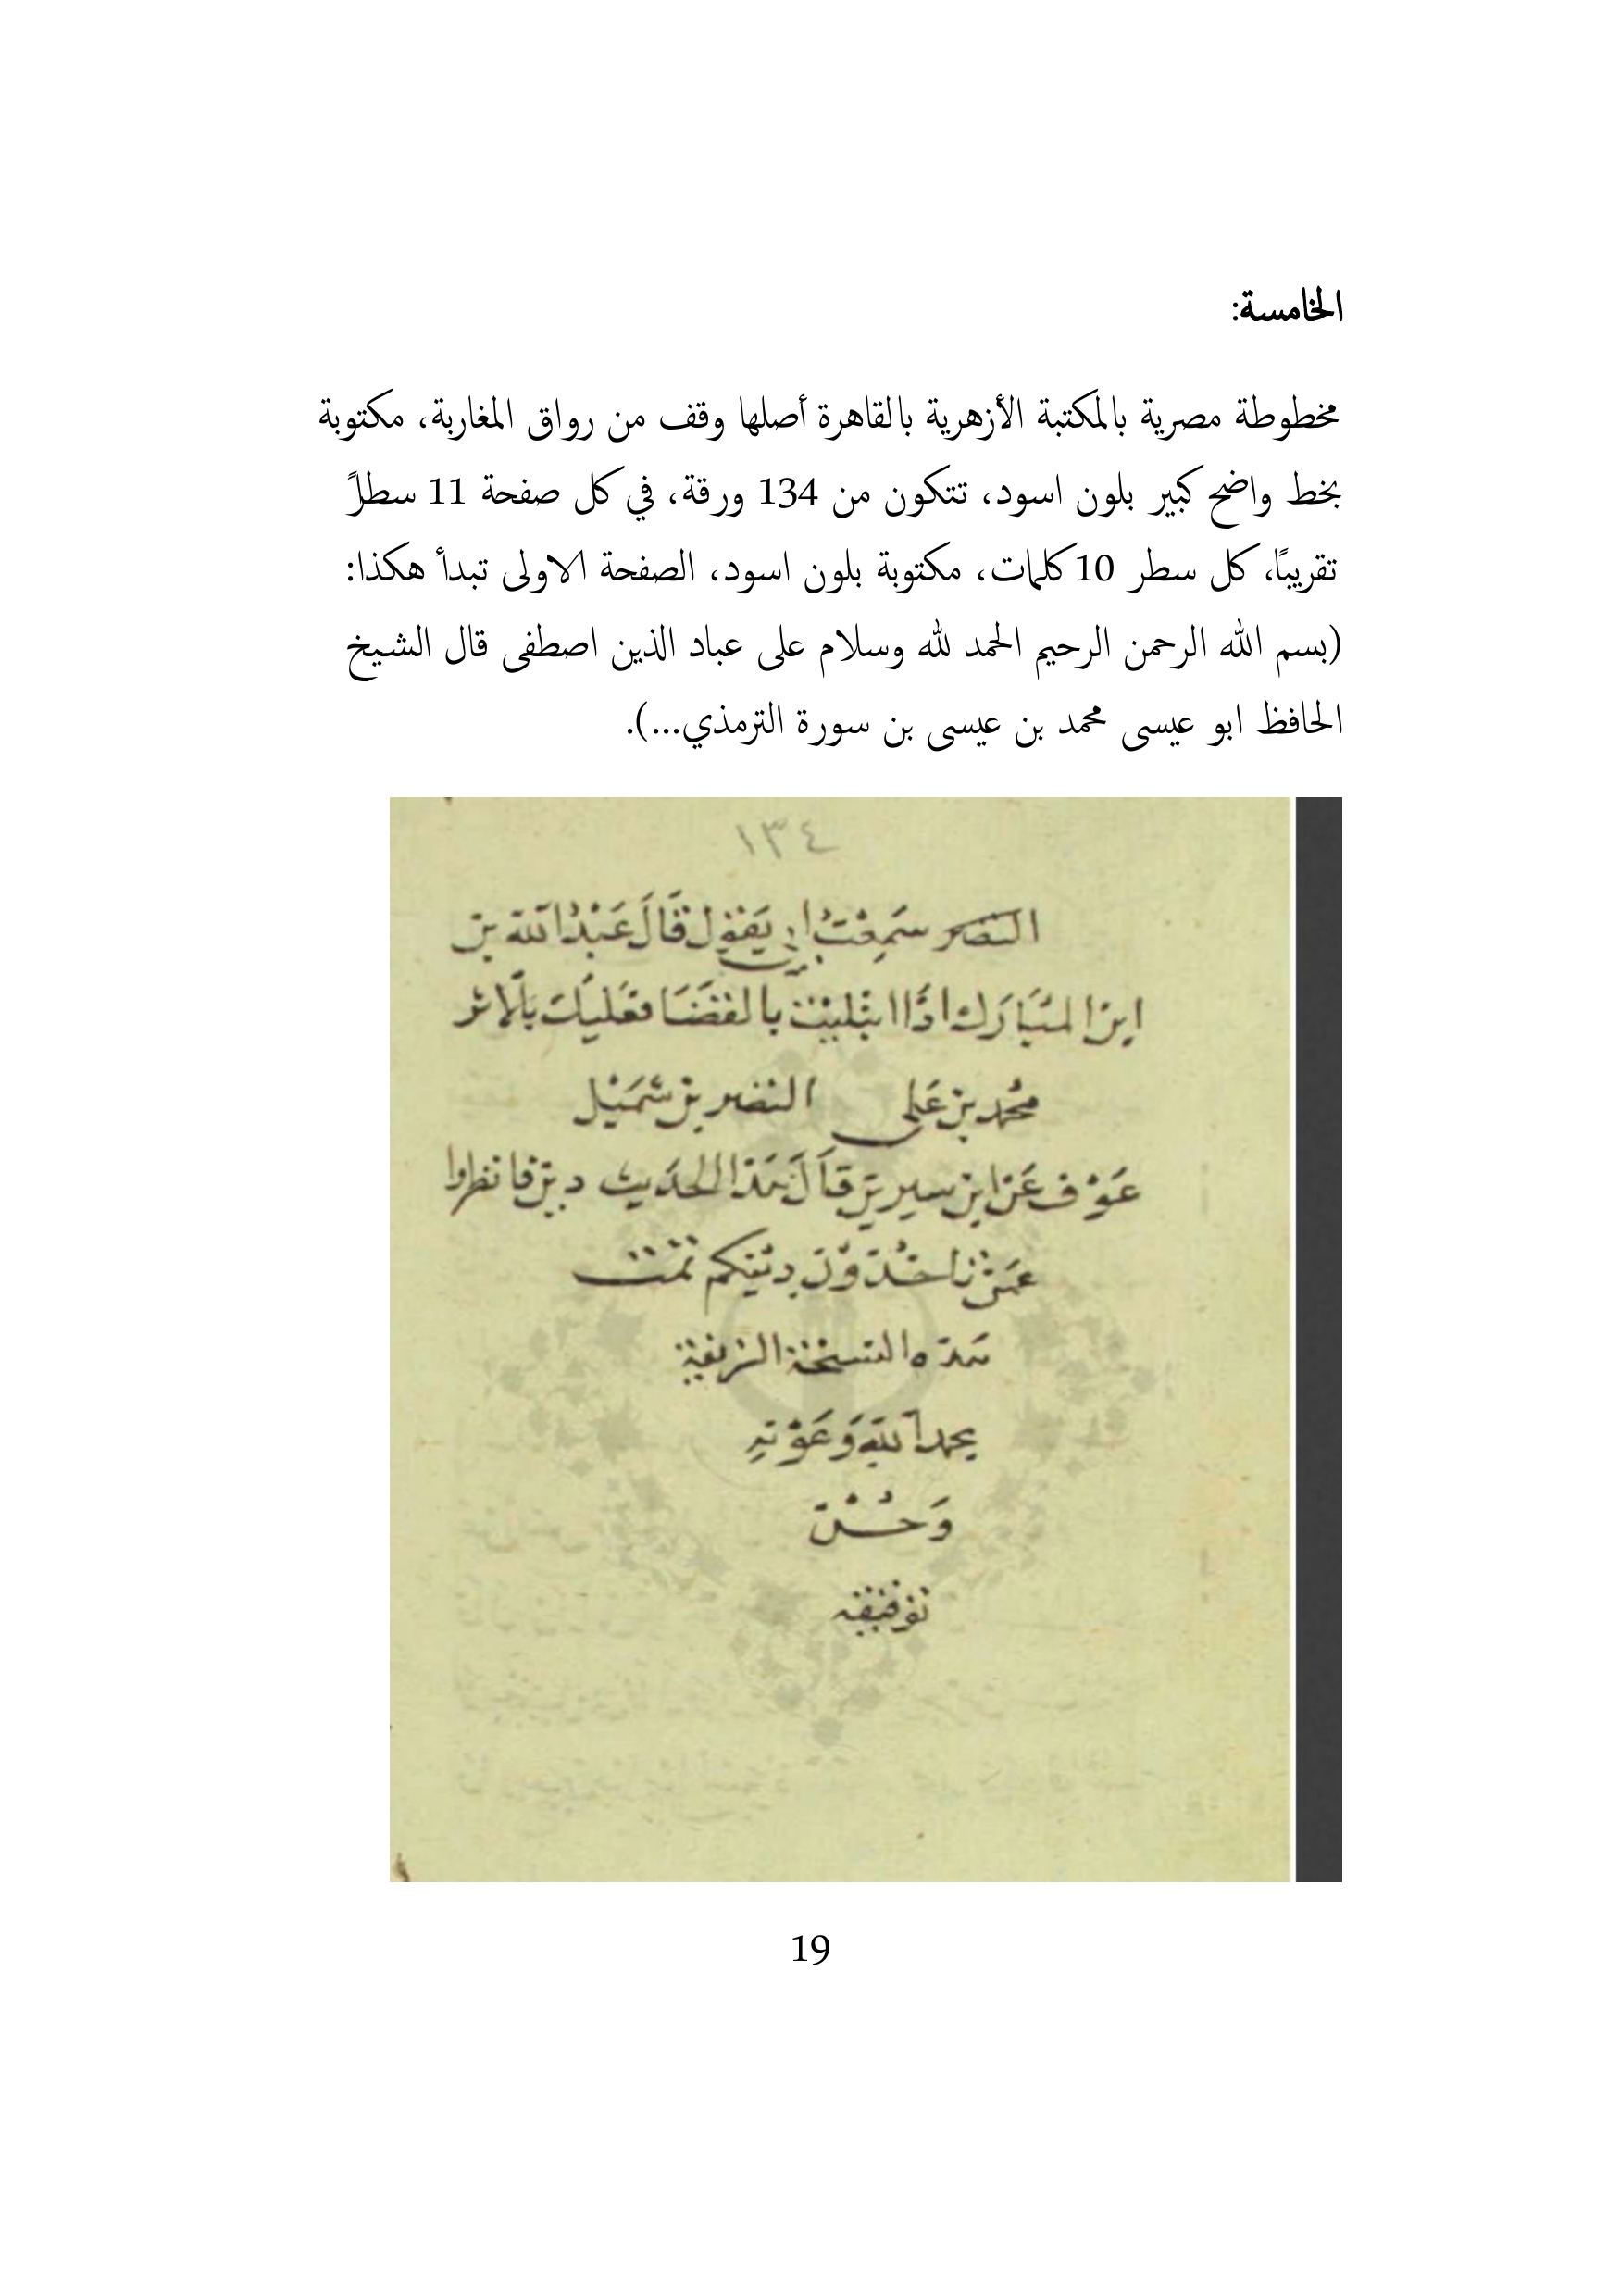 الخامسة:
مخطوطة مصرية بالمكتبة الأزهرية بالقاهرة أصلها وقف من رواق المغاربة، مكتوبة
بخط واضح كبير بلون اسود، تتكون من 134 ورقة، في كل صفحة 11 سطرً
تقريبًا، كل سطر 10 كلمات، مكتوبة بلون اسود، الصفحة الاولى تبدأ هكذا:
(بسم الله الرحمن الرحيم الحمد لله وسلام على عباد الذين اصطفى قال الشيخ
الحافظ ابو عيسى محمد بن عيسى بن سورة الترمذي...).
١٣٤
النضر سَمِعْتُ ابي يَقول قَالَ عَبْدُ الله بن
ابن المبَارَك اذَا ابتليت بالقضَا فعَليك بالاثر
محمد بن عَلى النضر بن شميل
عَوْف عَن ابن سيرين قَالَ هَذا الحَديث دين فانظروا
عمن تاخذون دينكم تمت
هذه النسخة الشريفة
بحمد الله وَعَوْنِهِ
وَحُسْن
توفيقه
19